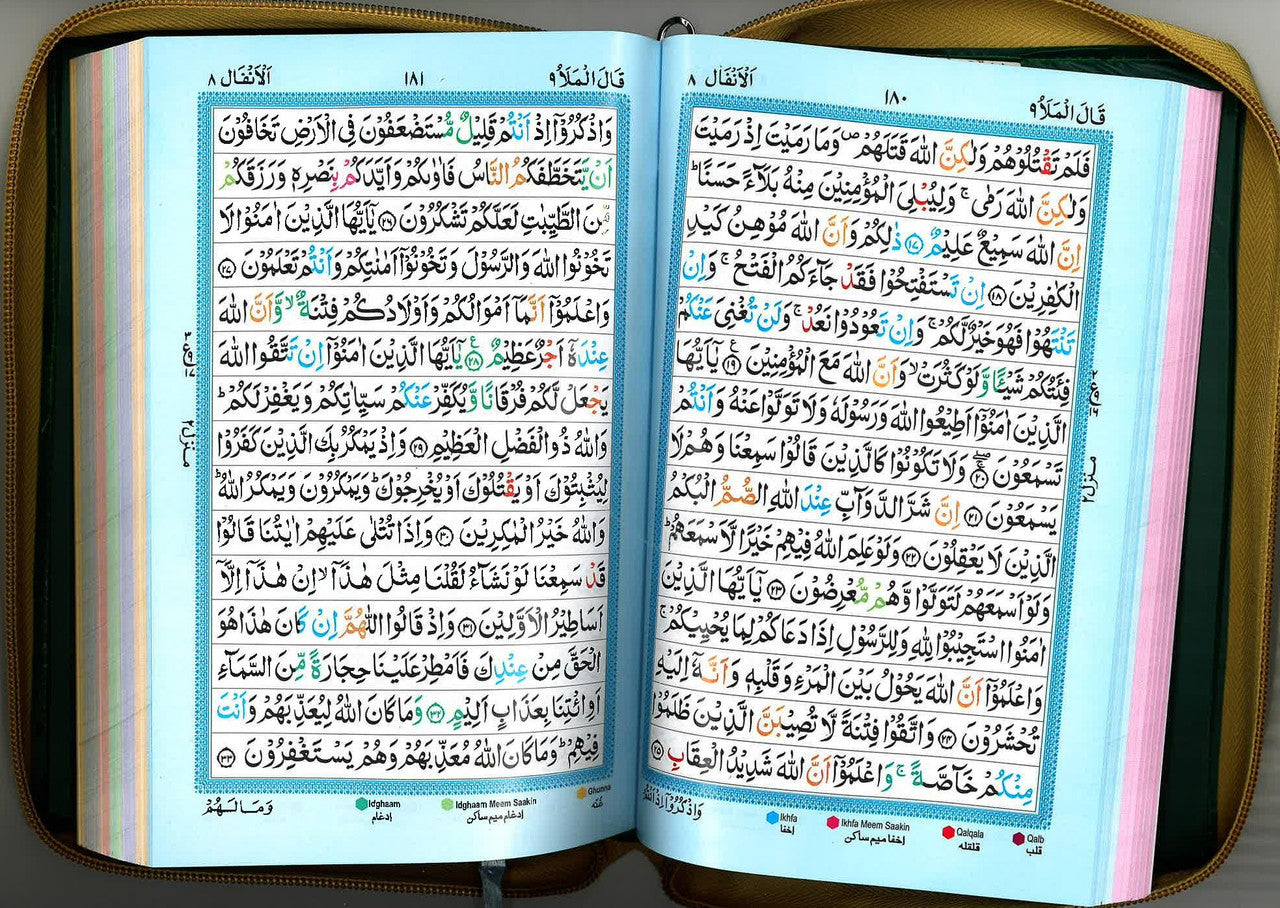 قَالَ الْمَلَاُ ٩
١٨٠
اَلْاَنْفَال ٨
فَلَمْ تَقْتُلُوْهُمْ وَلٰكِنَّ اللّٰهَ قَتَلَهُمْ ۪ وَمَا رَمَيْتَ اِذْ رَمَيْتَ
وَلٰكِنَّ اللّٰهَ رَمٰى ۚ وَلِيُبْلِىَ الْمُؤْمِنِيْنَ مِنْهُ بَلَآءً حَسَنًا ؕ
اِنَّ اللّٰهَ سَمِيْعٌ عَلِيْمٌ ﴿١٧﴾ ذٰلِكُمْ وَاَنَّ اللّٰهَ مُوْهِنُ كَيْدِ
الْكٰفِرِيْنَ ﴿١٨﴾ اِنْ تَسْتَفْتِحُوْا فَقَدْ جَآءَكُمُ الْفَتْحُ ۚ وَاِنْ
تَنْتَهُوْا فَهُوَ خَيْرٌ لَّكُمْ ۚ وَاِنْ تَعُوْدُوْا نَعُدْ ۚ وَلَنْ تُغْنِىَ عَنْكُمْ
فِئَتُكُمْ شَيْـًٔا وَّلَوْ كَثُرَتْ ۙ وَاَنَّ اللّٰهَ مَعَ الْمُؤْمِنِيْنَ ﴿١٩﴾ يٰۤاَيُّهَا
الَّذِيْنَ اٰمَنُوْۤا اَطِيْعُوا اللّٰهَ وَرَسُوْلَهٗ وَلَا تَوَلَّوْا عَنْهُ وَاَنْتُمْ
تَسْمَعُوْنَ ﴿٢٠﴾ وَلَا تَكُوْنُوْا كَالَّذِيْنَ قَالُوْا سَمِعْنَا وَهُمْ لَا
يَسْمَعُوْنَ ﴿٢١﴾ اِنَّ شَرَّ الدَّوَآبِّ عِنْدَ اللّٰهِ الصُّمُّ الْبُكْمُ
الَّذِيْنَ لَا يَعْقِلُوْنَ ﴿٢٢﴾ وَلَوْ عَلِمَ اللّٰهُ فِيْهِمْ خَيْرًا لَّاَسْمَعَهُمْ ؕ
وَلَوْ اَسْمَعَهُمْ لَتَوَلَّوْا وَّهُمْ مُّعْرِضُوْنَ ﴿٢٣﴾ يٰۤاَيُّهَا الَّذِيْنَ
اٰمَنُوا اسْتَجِيْبُوْا لِلّٰهِ وَلِلرَّسُوْلِ اِذَا دَعَاكُمْ لِمَا يُحْيِيْكُمْ ۚ
وَاعْلَمُوْۤا اَنَّ اللّٰهَ يَحُوْلُ بَيْنَ الْمَرْءِ وَقَلْبِهٖ وَاَنَّهٗۤ اِلَيْهِ
تُحْشَرُوْنَ ﴿٢٤﴾ وَاتَّقُوْا فِتْنَةً لَّا تُصِيْبَنَّ الَّذِيْنَ ظَلَمُوْا
مِنْكُمْ خَآصَّةً ۚ وَاعْلَمُوْۤا اَنَّ اللّٰهَ شَدِيْدُ الْعِقَابِ ﴿٢٥﴾
وَاذْكُرُوْۤا اِذْ اَنْتُمْ
منزل ٢
Ikhfa
اخفا
Ikhfa Meem Saakin
اخفا ميم ساكن
Qalqala
قلقله
Qalb
قلب
قَالَ الْمَلَاُ ٩
١٨١
اَلْاَنْفَال ٨
وَاذْكُرُوْۤا اِذْ اَنْتُمْ قَلِيْلٌ مُّسْتَضْعَفُوْنَ فِى الْاَرْضِ تَخَافُوْنَ
اَنْ يَّتَخَطَّفَكُمُ النَّاسُ فَاٰوٰىكُمْ وَاَيَّدَكُمْ بِنَصْرِهٖ وَرَزَقَكُمْ
مِّنَ الطَّيِّبٰتِ لَعَلَّكُمْ تَشْكُرُوْنَ ﴿٢٦﴾ يٰۤاَيُّهَا الَّذِيْنَ اٰمَنُوْا لَا
تَخُوْنُوا اللّٰهَ وَالرَّسُوْلَ وَتَخُوْنُوْۤا اَمٰنٰتِكُمْ وَاَنْتُمْ تَعْلَمُوْنَ ﴿٢٧﴾
وَاعْلَمُوْۤا اَنَّمَاۤ اَمْوَالُكُمْ وَاَوْلَادُكُمْ فِتْنَةٌ ۙ وَّاَنَّ اللّٰهَ
عِنْدَهٗۤ اَجْرٌ عَظِيْمٌ ﴿٢٨﴾ يٰۤاَيُّهَا الَّذِيْنَ اٰمَنُوْۤا اِنْ تَتَّقُوا اللّٰهَ
يَجْعَلْ لَّكُمْ فُرْقَانًا وَّيُكَفِّرْ عَنْكُمْ سَيِّاٰتِكُمْ وَيَغْفِرْ لَكُمْ ؕ
وَاللّٰهُ ذُو الْفَضْلِ الْعَظِيْمِ ﴿٢٩﴾ وَاِذْ يَمْكُرُ بِكَ الَّذِيْنَ كَفَرُوْا
لِيُثْبِتُوْكَ اَوْ يَقْتُلُوْكَ اَوْ يُخْرِجُوْكَ ؕ وَيَمْكُرُوْنَ وَيَمْكُرُ اللّٰهُ ؕ
وَاللّٰهُ خَيْرُ الْمٰكِرِيْنَ ﴿٣٠﴾ وَاِذَا تُتْلٰى عَلَيْهِمْ اٰيٰتُنَا قَالُوْا
قَدْ سَمِعْنَا لَوْ نَشَآءُ لَقُلْنَا مِثْلَ هٰذَاۤ ۙ اِنْ هٰذَاۤ اِلَّاۤ
اَسَاطِيْرُ الْاَوَّلِيْنَ ﴿٣١﴾ وَاِذْ قَالُوا اللّٰهُمَّ اِنْ كَانَ هٰذَا هُوَ
الْحَقَّ مِنْ عِنْدِكَ فَاَمْطِرْ عَلَيْنَا حِجَارَةً مِّنَ السَّمَآءِ
اَوِ ائْتِنَا بِعَذَابٍ اَلِيْمٍ ﴿٣٢﴾ وَمَا كَانَ اللّٰهُ لِيُعَذِّبَهُمْ وَاَنْتَ
فِيْهِمْ ؕ وَمَا كَانَ اللّٰهُ مُعَذِّبَهُمْ وَهُمْ يَسْتَغْفِرُوْنَ ﴿٣٣﴾
وَمَا لَهُمْ
منزل ٢
Idghaam
ادغام
Idghaam Meem Saakin
ادغام ميم ساكن
Ghunna
غنه